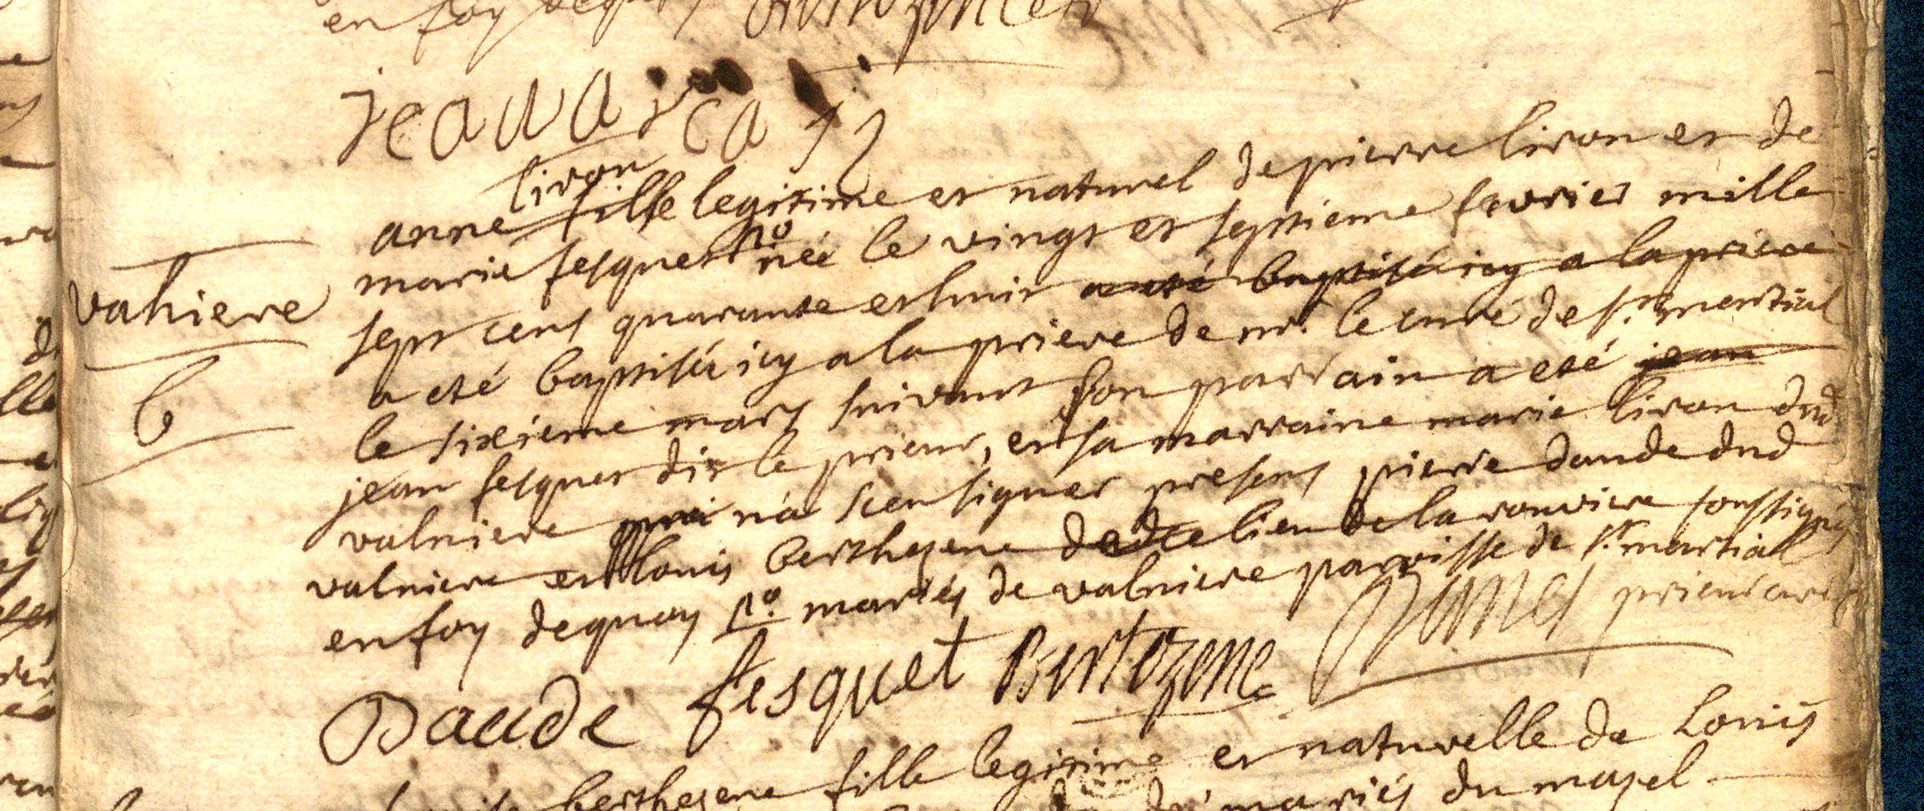 en foy dequoy
valniere
B
liron
anne fille legitime et naturel de pierre liron et de
marie fesquet no née le vingt et septieme fevrier mille
sept cens quarante et huit a eté baptisée icy a la priere
a eté baptisée icy a la priere de mr. le curé de st. martial
le sixieme mars suivant son parrain a eté jean
jean fesquet dit le prieur, et sa marraine marie liron dud
valniere qui n'a sceu signer presens pierre daudé dud
valniere et louis berthezene du lieu de la rouviere soussignés
en foy dequoy no mariés de valniere parroisse de st. martial
Daudé fesquet Bertezene prieur curé
berthezene fille legitime et naturelle de Louis
mariés du mazel